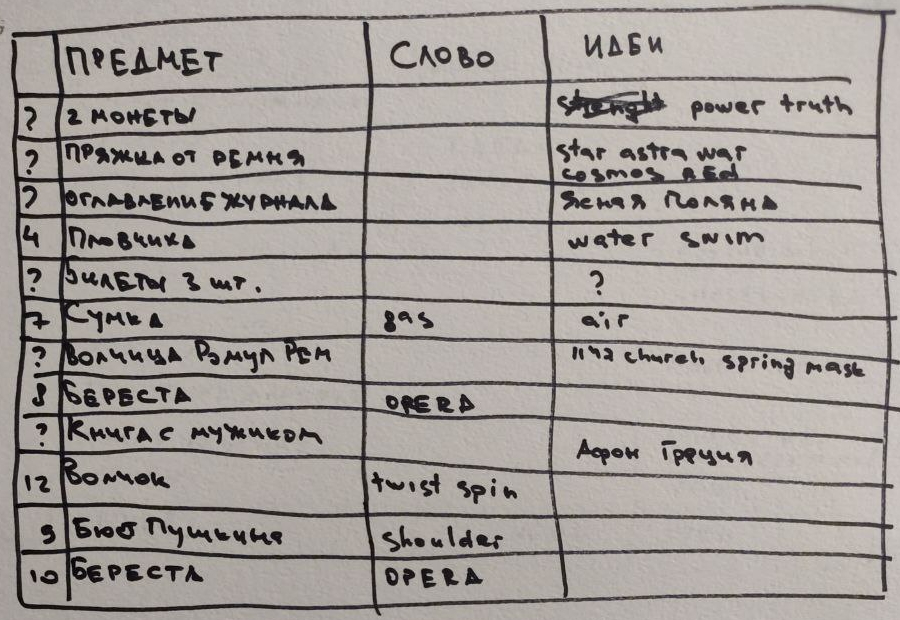 ПРЕДМЕТ СЛОВО ИДЕИ
? 2 МОНЕТЫ power truth
? ПРЯЖКА ОТ РЕМНЯ star astra war
cosmos RED
? ОГЛАВЛЕНИЕ ЖУРНАЛА Ясная Поляна
4 Пловчиха water swim
? Билеты 3 шт. ?
7 Сумка gas air
? Волчица Рэмул Рем 1142 church spring mask
8 БЕРЕСТА OPERA
? Книга с мужиком Афон Греция
12 Волчок twist spin
9 Бюст Пушкина shoulder
10 БЕРЕСТА OPERA